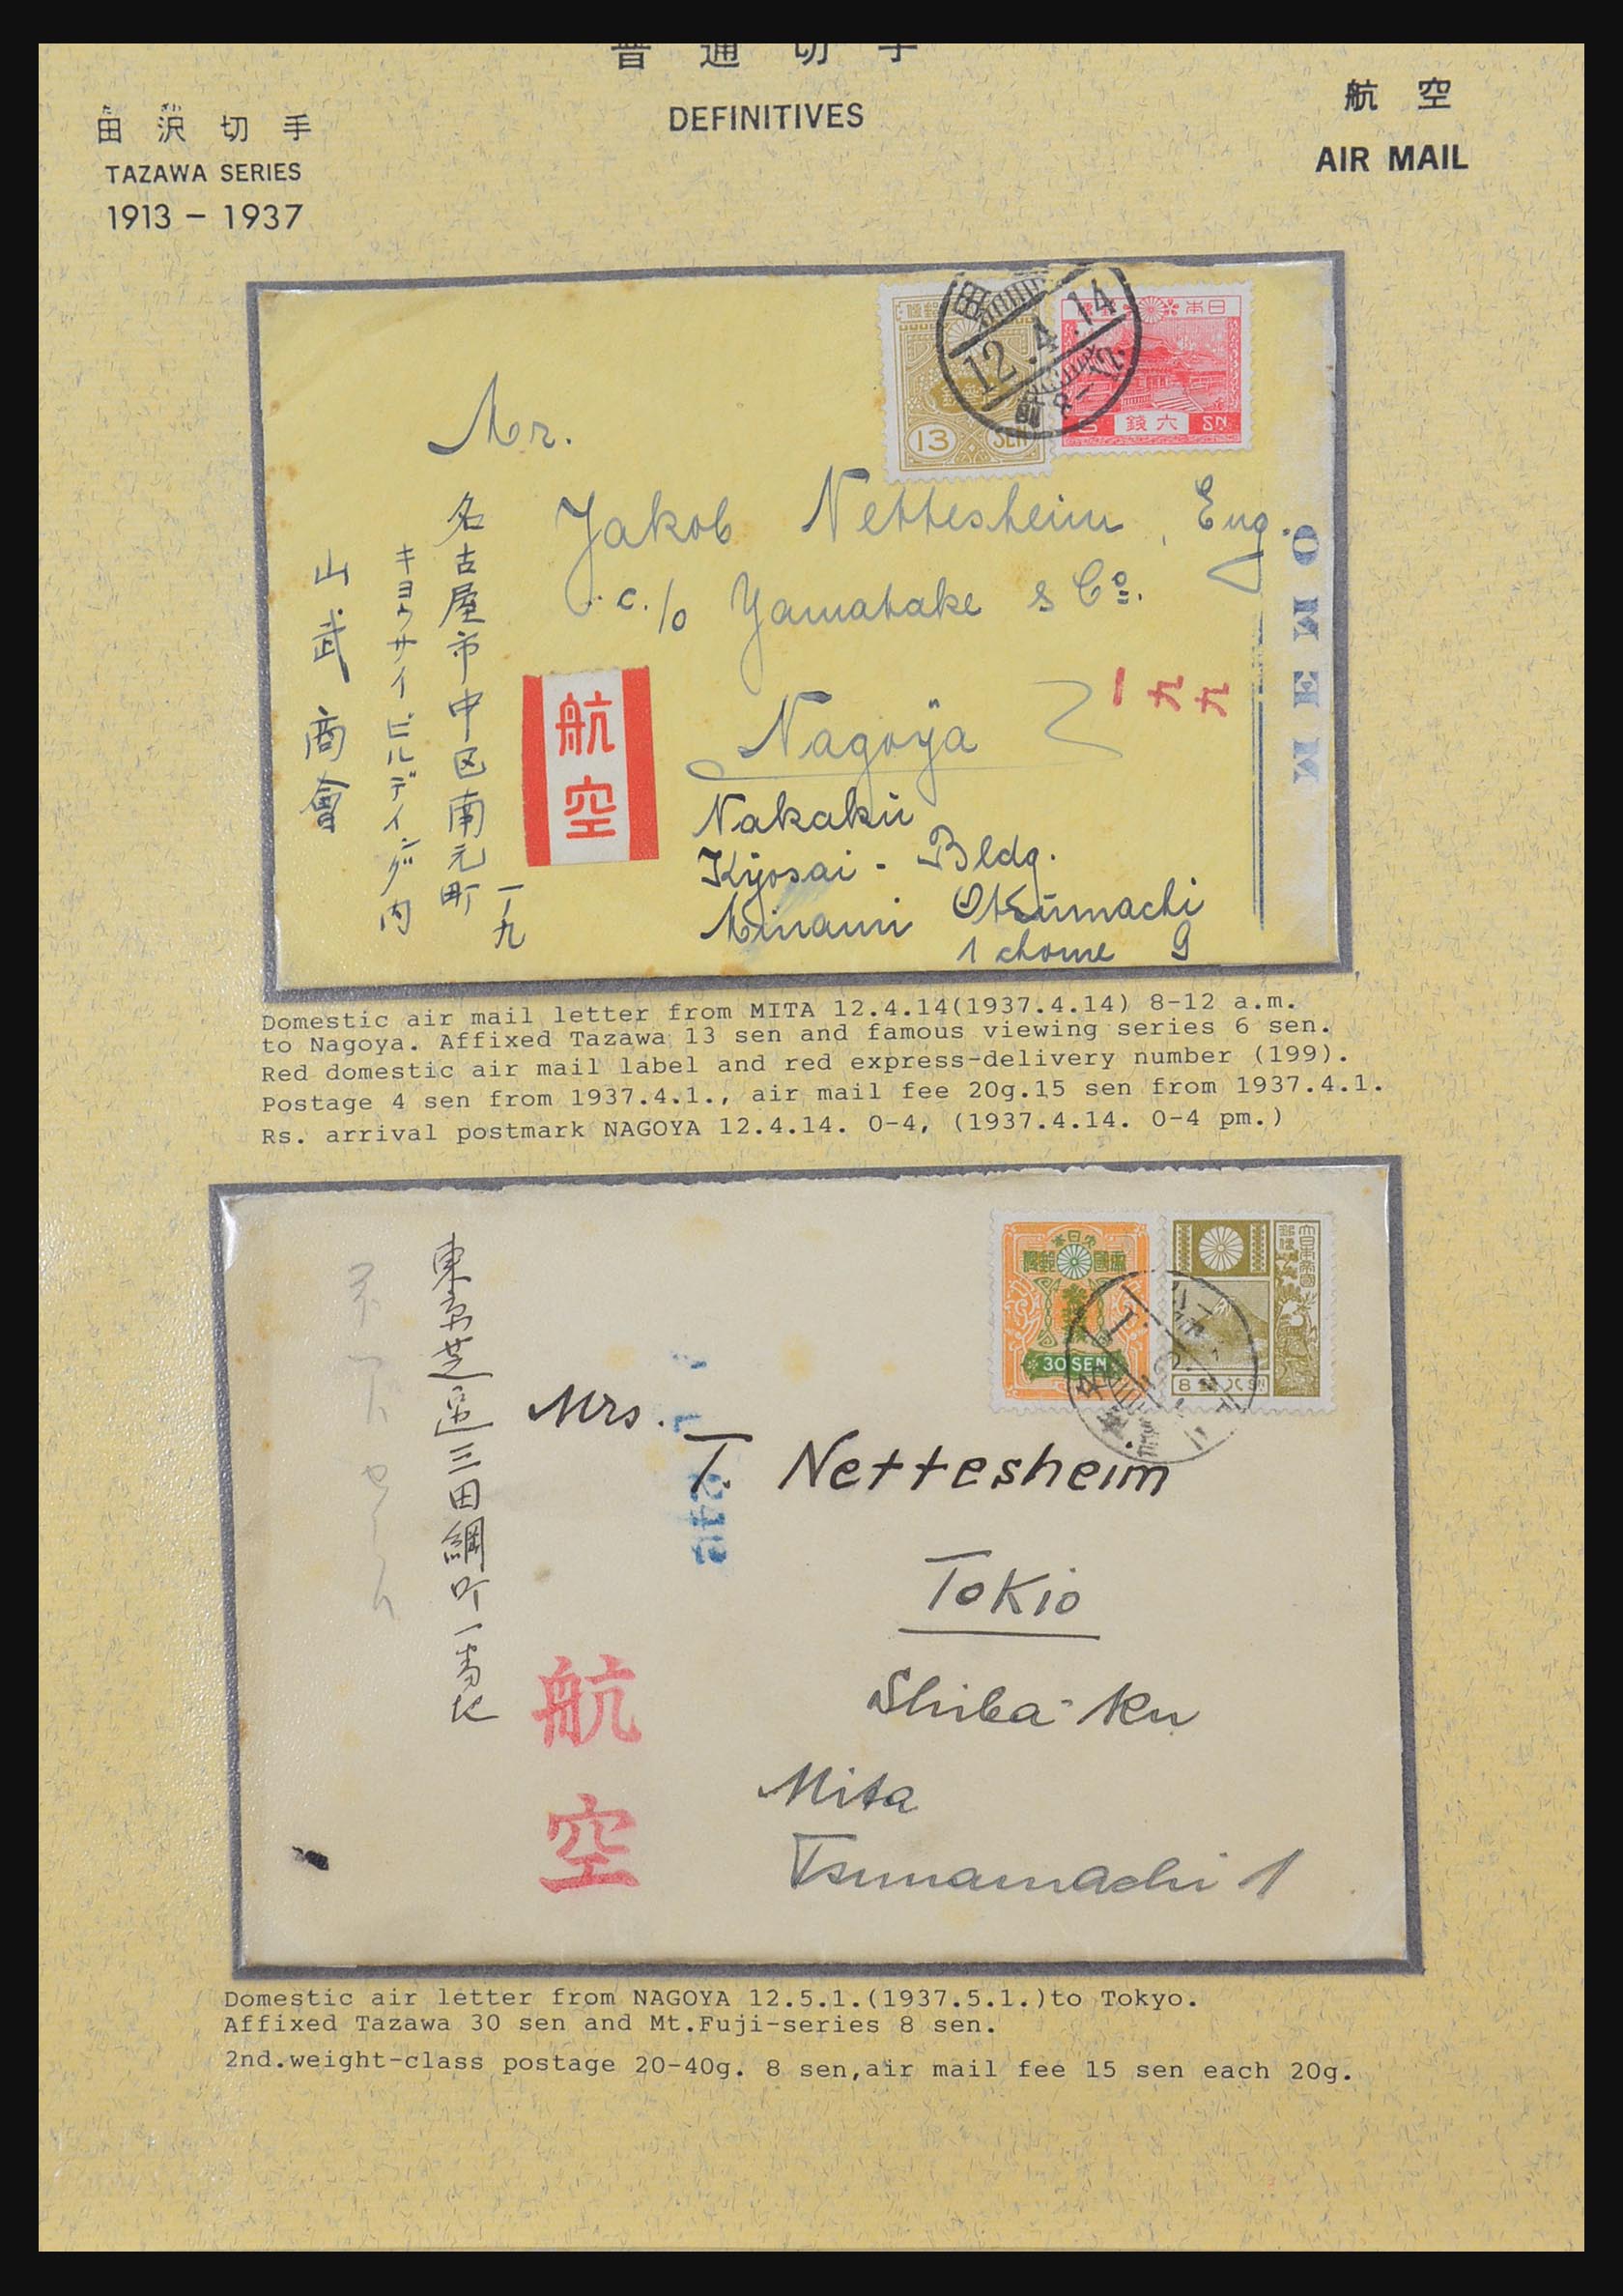 普通切手
DEFINITIVES
田沢切手
TAZAWA SERIES
1913 – 1937
航空
AIR MAIL
12.4.14
13 SEN
日本
六銭 SN
Mr.
Jakob Nettesheim, Eng.
c./o Yamatake & Co.
Nagoya
Nakaku
Kyosai - Bldg.
Minami
1 chome 9
一九九
航空
一ノ九
名古屋市中区南元町
キヨウサイビルディング内
山武商會
MEMO
Domestic air mail letter from MITA 12.4.14(1937.4.14) 8-12 a.m.
to Nagoya. Affixed Tazawa 13 sen and famous viewing series 6 sen.
Red domestic air mail label and red express-delivery number (199).
Postage 4 sen from 1937.4.1., air mail fee 20g.15 sen from 1937.4.1.
Rs. arrival postmark NAGOYA 12.4.14. 0-4, (1937.4.14. 0-4 pm.)
30 SEN
大日本帝國
郵便
8 SN
Mrs.
T. Nettesheim
Tokio
Shiba-Ku
Mita
Tsunamachi 1
東京芝区三田綱町一番地
航空
Domestic air letter from NAGOYA 12.5.1.(1937.5.1.)to Tokyo.
Affixed Tazawa 30 sen and Mt.Fuji-series 8 sen.
2nd.weight-class postage 20-40g. 8 sen,air mail fee 15 sen each 20g.